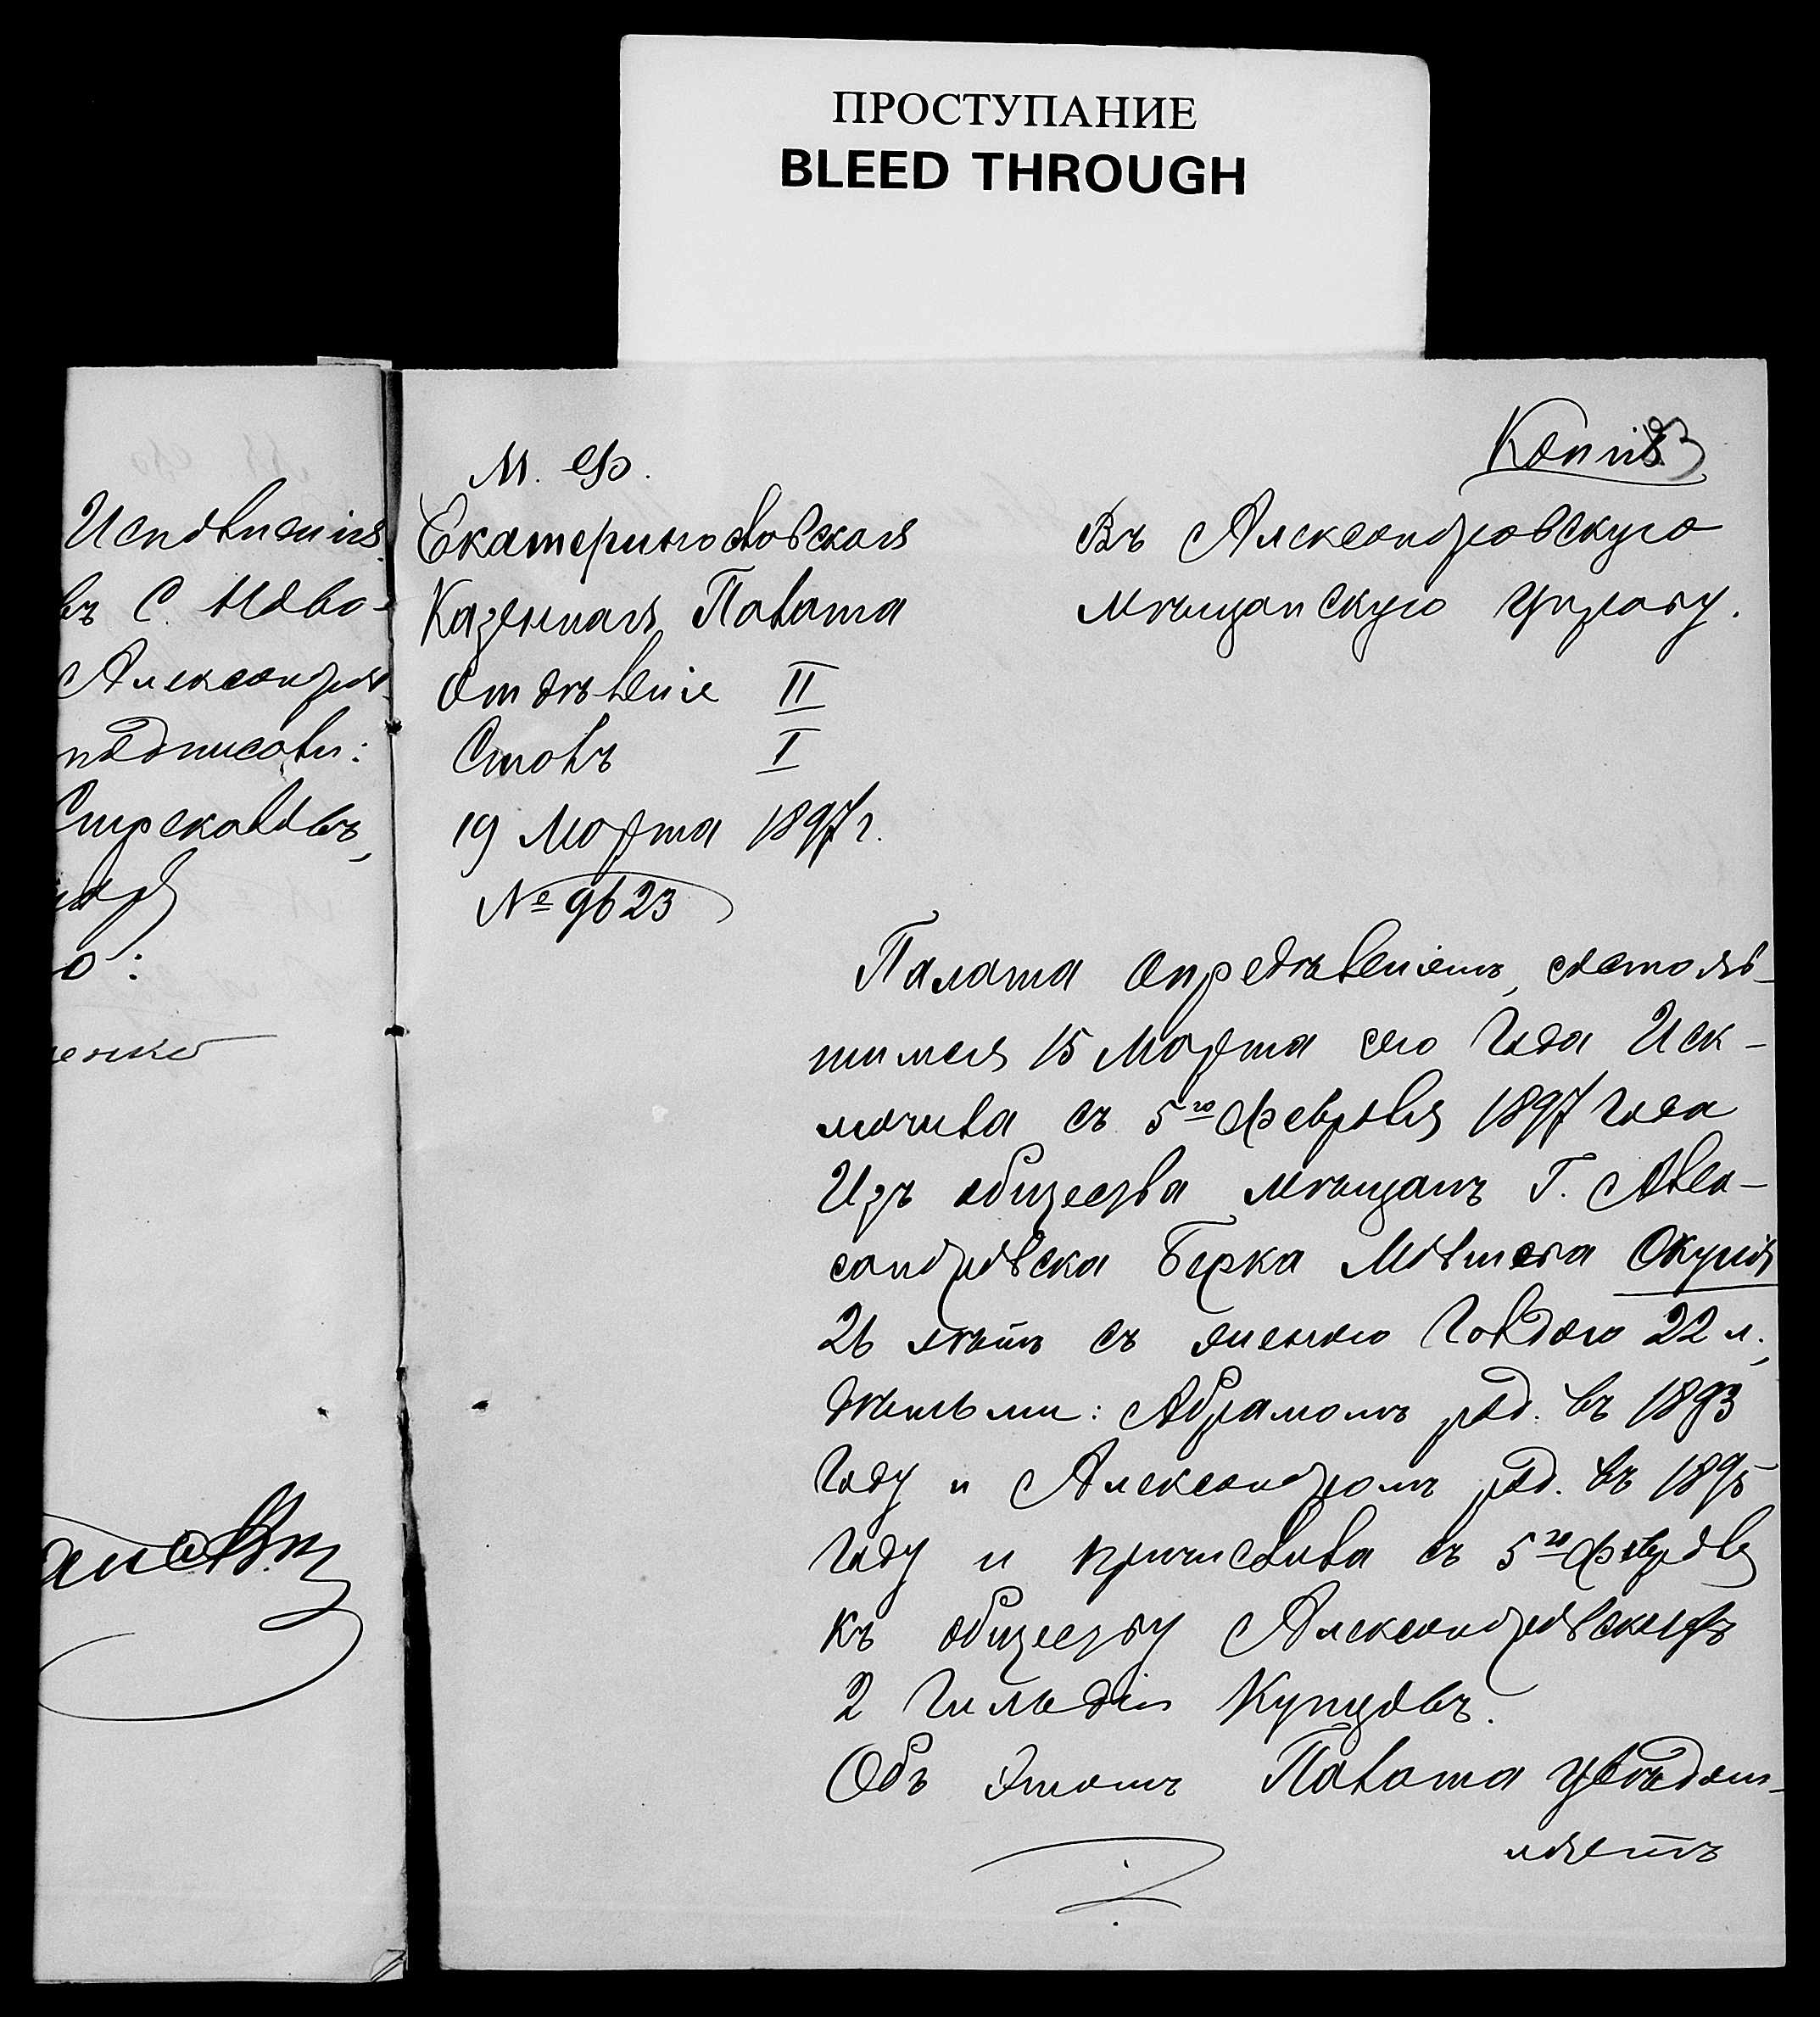 ПРОСТУПАНИЕ
BLEED THROUGH
Исполненія
въ С. Ново-
Александро
подписали:
Стрекаловъ,
о:
енко
Копія
М. Ф.
Екатеринославская
Казенная Палата
Отдѣленіе II
Столъ I
19 Марта 1897 г.
№ 9623
Въ Александровскую
мѣщанскую Управу.
Палата опредѣленіемъ, состояв-
шимся 15 Марта сего года Иск-
лючила съ 5го февраля 1897 года
Изъ общества мѣщанъ Г. Алек-
сандровска Берка Мовшева Окуня
26 лѣтъ съ женою Голдою 22 л.,
дѣтьми: Абрамомъ род. въ 1893
году и Александромъ род. въ 1895
году и причислила съ 5го февраля
къ обществу Александровскихъ
2 гильдіи Купцовъ.
Объ этомъ Палата увѣдом-
ляетъ